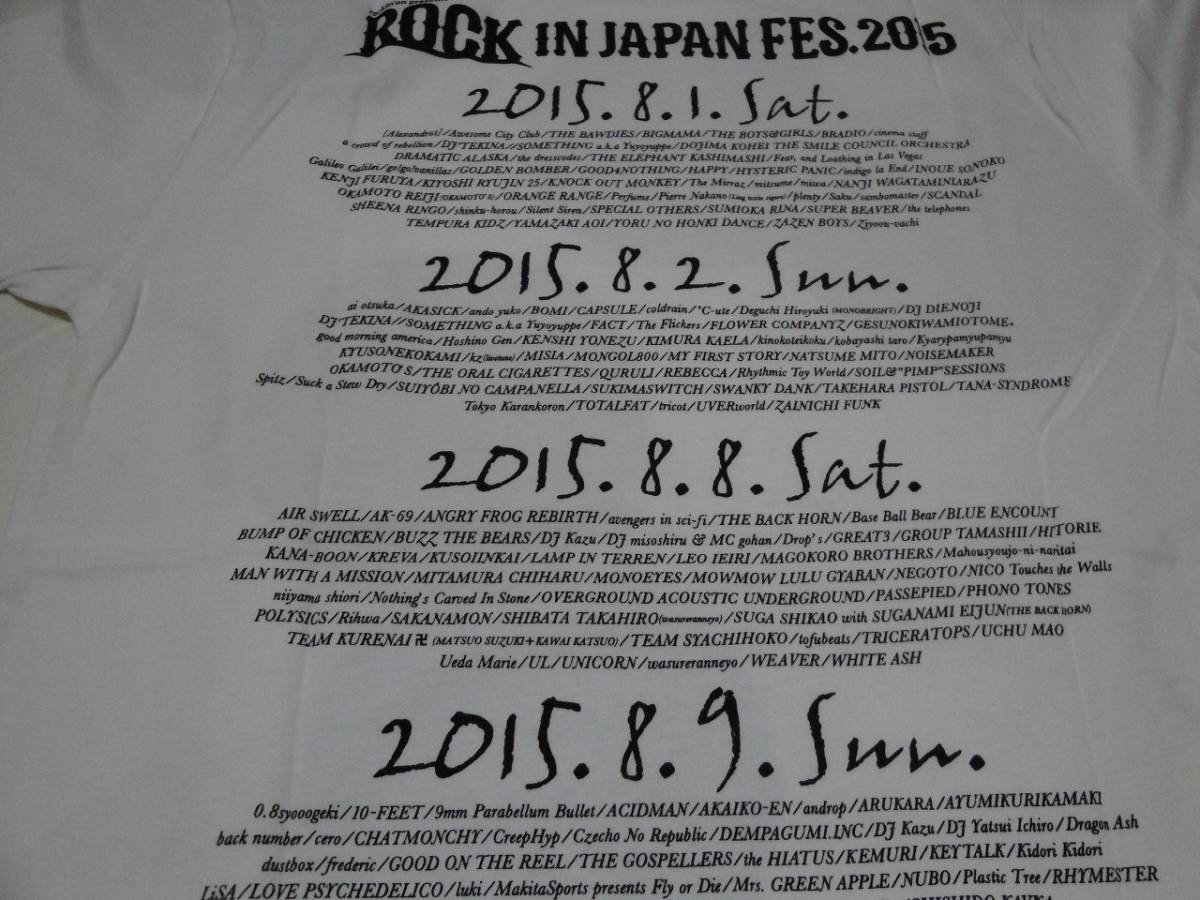 ROCK IN JAPAN FES.2015
2015.8.1.Sat.
[Alexandros]/Awesome City Club/THE BAWDIES/BIGMAMA/THE BOYS&GIRLS/BRADIO/cinema staff
a crowd of rebellion/DJ'TEKINA//SOMETHING a.k.a Yuyoyuppe/DOJIMA KOHEI THE SMILE COUNCIL ORCHESTRA
DRAMATIC ALASKA/the dresscodes/THE ELEPHANT KASHIMASHI/Fear, and Loathing in Las Vegas
Galileo Galilei/go!go!vanillas/GOLDEN BOMBER/GOOD4NOTHING/HAPPY/HYSTERIC PANIC/indigo la End/INOUE SONOKO
KENJI FURUYA/KIYOSHI RYUJIN 25/KNOCK OUT MONKEY/The Mirraz/mitsume/miwa/NANJI WAGATAMINIARAZU
OKAMOTO REIJI(OKAMOTO'S)/ORANGE RANGE/Perfume/Pierre Nakano(Ling tosite sigure)/plenty/Saku/sambomaster/SCANDAL
SHEENA RINGO/shinku-horou/Silent Siren/SPECIAL OTHERS/SUMIOKA RINA/SUPER BEAVER/the telephones
TEMPURA KIDZ/YAMAZAKI AOI/YORU NO HONKI DANCE/ZAZEN BOYS/Ziyoou-vachi
2015.8.2.Sun.
ai otsuka/AKASICK/ando yuko/BOMI/CAPSULE/coldrain/°C-ute/Deguchi Hiroyuki (MONOBRIGHT)/DJ DIENOJI
DJ'TEKINA//SOMETHING a.k.a Yuyoyuppe/FACT/The Flickers/FLOWER COMPANYZ/GESUNOKIWAMIOTOME.
good morning america/Hoshino Gen/KENSHI YONEZU/KIMURA KAELA/kinokoteikoku/kobayashi taro/Kyarypamyupamyu
KYUSONEKOKAMI/kz(livetune)/MISIA/MONGOL800/MY FIRST STORY/NATSUME MITO/NOISEMAKER
OKAMOTO'S/THE ORAL CIGARETTES/QURULI/REBECCA/Rhythmic Toy World/SOIL&"PIMP"SESSIONS
Spitz/Suck a Stew Dry/SUIYOBI NO CAMPANELLA/SUKIMASWITCH/SWANKY DANK/TAKEHARA PISTOL/TANA-SYNDROME
Tokyo Karankoron/TOTALFAT/tricot/UVERworld/ZAINICHI FUNK
2015.8.8.Sat.
AIR SWELL/AK-69/ANGRY FROG REBIRTH/avengers in sci-fi/THE BACK HORN/Base Ball Bear/BLUE ENCOUNT
BUMP OF CHICKEN/BUZZ THE BEARS/DJ Kazu/DJ misoshiru & MC gohan/Drop's/GREAT3/GROUP TAMASHII/HITORIE
KANA-BOON/KREVA/KUSOIINKAI/LAMP IN TERREN/LEO IEIRI/MAGOKORO BROTHERS/Mahousyoujo-ni-naritai
MAN WITH A MISSION/MITAMURA CHIHARU/MONOEYES/MOWMOW LULU GYABAN/NEGOTO/NICO Touches the Walls
niiyama shiori/Nothing's Carved In Stone/OVERGROUND ACOUSTIC UNDERGROUND/PASSEPIED/PHONO TONES
POLYSICS/Rihwa/SAKANAMON/SHIBATA TAKAHIRO(wasureranneyo)/SUGA SHIKAO with SUGANAMI EIJUN(THE BACK HORN)
TEAM KURENAI卍(MATSUO SUZUKI+KAWAI KATSUO)/TEAM SYACHIHOKO/tofubeats/TRICERATOPS/UCHU MAO
Ueda Marie/UL/UNICORN/wasureranneyo/WEAVER/WHITE ASH
2015.8.9.Sun.
0.8syooogeki/10-FEET/9mm Parabellum Bullet/ACIDMAN/AKAIKO-EN/androp/ARUKARA/AYUMIKURIKAMAKI
back number/cero/CHATMONCHY/CreepHyp/Czecho No Republic/DEMPAGUMI.INC/DJ Kazu/DJ Yatsui Ichiro/Dragon Ash
dustbox/frederic/GOOD ON THE REEL/THE GOSPELLERS/the HIATUS/KEMURI/KEYTALK/Kidori Kidori
LiSA/LOVE PSYCHEDELICO/luki/MakitaSports presents Fly or Die/Mrs. GREEN APPLE/NUBO/Plastic Tree/RHYMESTER